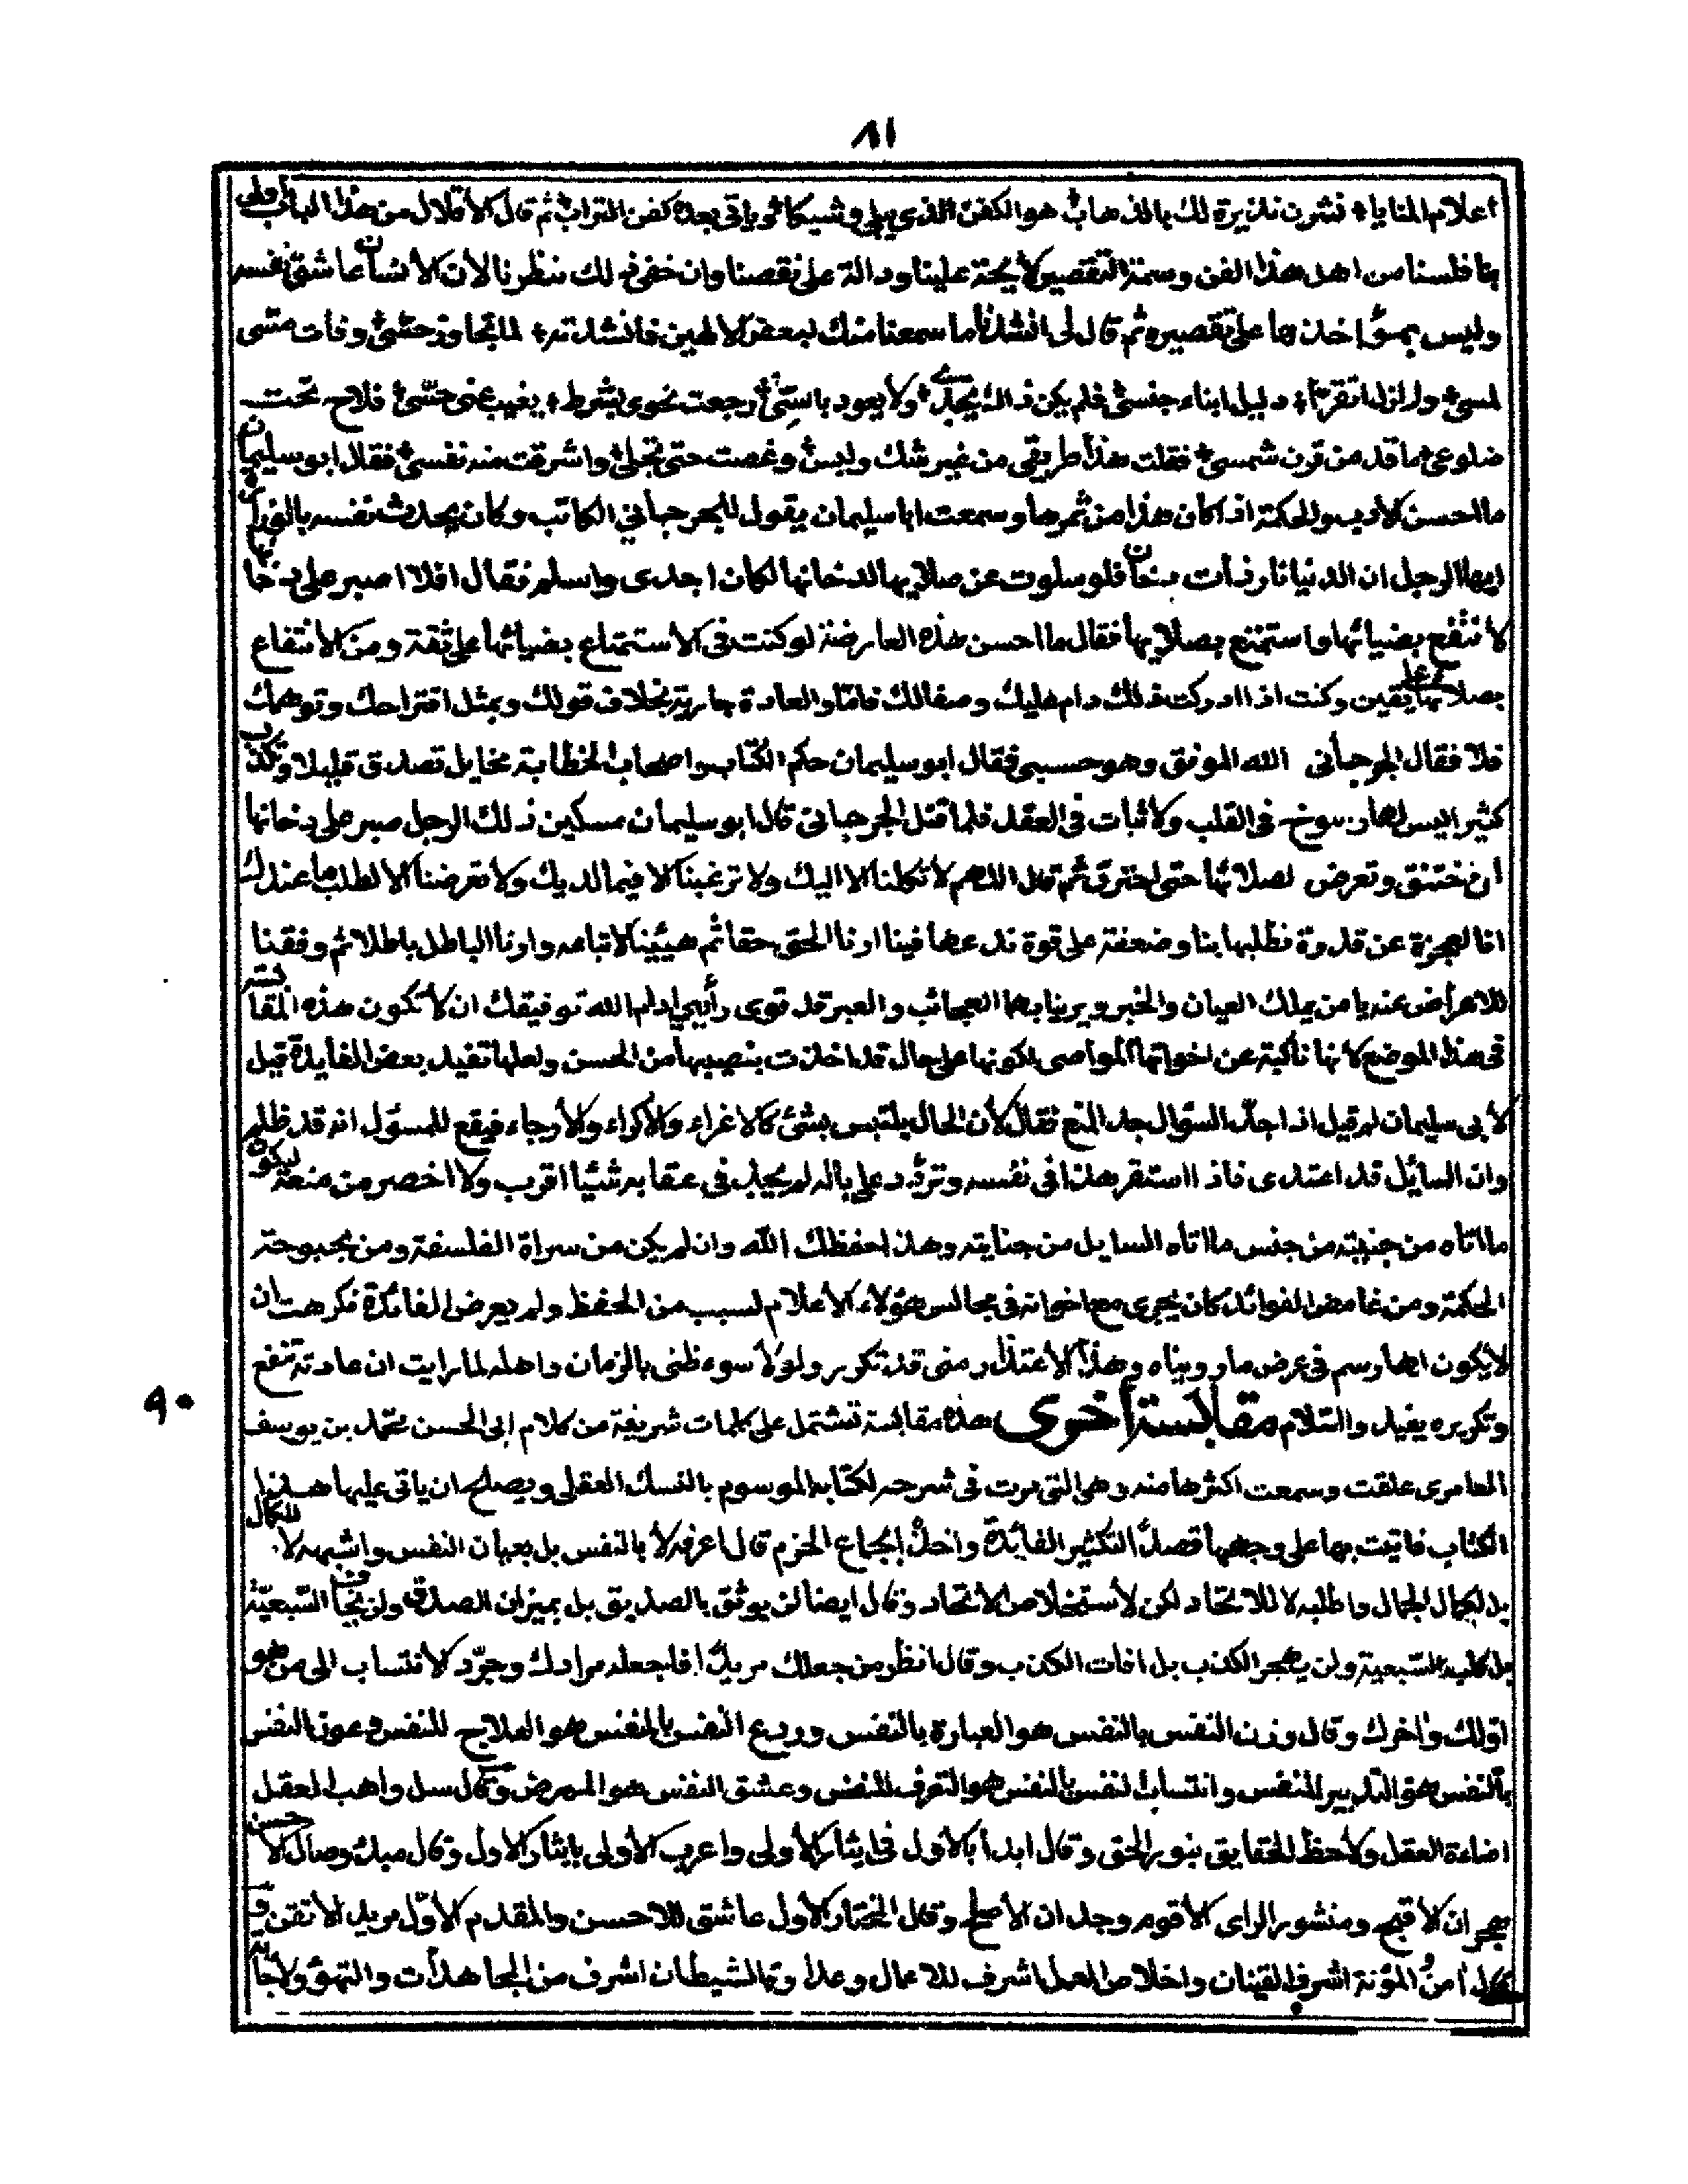 ٨١
اعلام المنايا ؛ نشرن نذيرة لك بالذهاب هو الكفن الذي يبلي وشيكا ؛ ويأتي بعده كفن التراب ثم قال الاقلال من هذا الباب اولى
بنا فلسنا من اهل هذا الفن وسمة التقصير لايحة علينا ودالة على نقصنا وان خفى ذلك بنظرنا لان الانسان عاشق نفسه
وليس بمؤاخذ لها على تقصيره ثم قال لى انشدنا ما سمعنا منك لبعض الالهين فانشدته ؛ لما تجاوز حسّى وفات متنى
لمسى ولم ازل اتقرا ؛ دليل ابناء جنسى فلم يكن ذاك يجدى ولا يعود بانسى رجعت نحوى بشرط ؛ يغيب عنى حسّى فلاح تحت
ضلوعى ما قد من قرن شمسى فقلت هذا طريقى من غير شك ولبس وغصت حتى تجلى واشرقت منه نفسى فقال ابو سليمان
ما احسن الادب والحكمة اذا كان هذا من ثمرها وسمعت ابا سليمان يقول للجرجاني الكاتب وكان يحدث نفسه بالوزارة
ايها الرجل ان الدنيا نار ذات دخان فلو سلوت عن صلايها لدخانها لكان اجدى واسلم فقال افلا اصبر على دخانها
لا نتفع بضيائها واستمتع بصلايها فقال ما احسن هذه المعارضة لو كنت فى الاستمتاع بضيائها على ثقة ومن الانتفاع
بصلائها على يقين وكنت اذا ادركت ذلك دام عليك وصفا لك فاما والعادة جارية بخلاف قولك وبمثل اقتراحك وتوهمك
فلا فقال الجرجاني الله الموفق وهو حسبى فقال ابو سليمان حكم الكتاب واصحاب الخطابة مخايل تصدق قليلا وتكذب
كثيرا ليس لها رسوخ فى القلب ولا ثبات فى العقل فلما قتل الجرجاني قال ابو سليمان مسكين ذلك الرجل صبر على دخانها
ان ختنق وتعرض لصلائها حتى احترق ثم قال اللهم لا تكلنا الا اليك ولا ترغبنا الا فيما لديك ولا تعرضنا الا لطلب ما عندك
انا لعجزة عن قدرة نطلبها بنا وضعفة على قوة ندعها فينا ارنا الحق حقا ثم هيئنا لاتباعه وارنا الباطل باطلا ثم وفقنا
للاعراض عنه يا من يملك العيان والخبر ويرينا بهما العجائب والعبر قد قوى رأيي ادام الله توفيقك ان لا تكون هذه المقابسة
فى هذا الموضع لانها ناكبة عن اخواتها المواصى لكونها على حال قد اخذت بنصيبها من الحسن ولعلها تفيد بعض الفايدة قيل
لابى سليمان لم قيل اذا جدّ السؤال جد المنع فقال لان الحال يلتبس بشئ كالاغراء والاكراء والارجاء فيقع للمسؤل انه قد ظلم
وان السايل قد اعتدى فاذا استقر هذا فى نفسه وتردد على باله لم يجد فى عقابه شئيا اقرب ولا اخصر من منعه ليكون
ما اتاه من جنيته من جنس ما اتاه السايل من جنايته وهذا احفظك الله وان لم يكن من سراة الفلسفة ومن بحبوحة
الحكمة ومن غامض الفوائد كان يجرى مع اخواته فى مجالس هؤلاء الاعلام لسبب من الحفظ ولم يعرض الفائدة فكرهت ان
لا يكون لها رسم فى عرض ما رويناه وهذا الاعتذار منى قد تكرر ولولا سوء ظنى بالزمان واهله لما رايت ان عادته تنفع
وتكريره يفيد والسّلام مقابسة أخرى هذه مقابسة تشتمل على كلمات شريفة من كلام ابى الحسن محمد بن يوسف
٩٠
العامرى علقت وسمعت اكثرها منه وهى التى مرت فى شرحه لكتابه الموسوم بالنسك العقلى ويصلح ان ياتى عليها هذا
الكتاب فاتيت بها على وجهها قصد التكثير الفائدة واخذ بجماع الحزم قال اعرفه لا بالنفس بل بعيان النفس واشبهه لا للكمال
بل لكمال الجمال واطلبه لا للاتحاد لكن لاستخلاص الاتحاد وقال ايضا لن يوثق بالصديق بل بميزان الصدق ولن تجافى السّبعيّة
بل كلب السّبعية ولن يهجر الكذب بل افات الكذب وقال انظر من جعلك مريدا فاجعله مرادك وجرّد الانتساب الى من هو
اولك واخرك وقال وزن النفس بالنفس هو العبارة بالنفس وردع النفس بالنفس هو العلاج للنفس وعون النفس
بالنفس هو التدبير للنفس وانتساب النفس بالنفس هو التعرف للنفس وعشق النفس هو المرض وقال سل واهب العقل
اضاءة العقل ولاحظ الحقايق بنور الحق وقال ابدا بالاول فى ايثار الاولى واعرب الاولى بايثار الاول وقال مبدء وصال الاحسن
هجران الاقبح ومنشور الراى الاقوم وجدان الاصلح وقال المختار الاول عاشق للاحسن والمقدم الاوّل مريد الاتقن و
قال امن المؤنة اشرف القينان واخلاص العمل اشرف للاعمال وعداوة الشيطان اشرف من المجاهدات والتهوّ ولاجابة